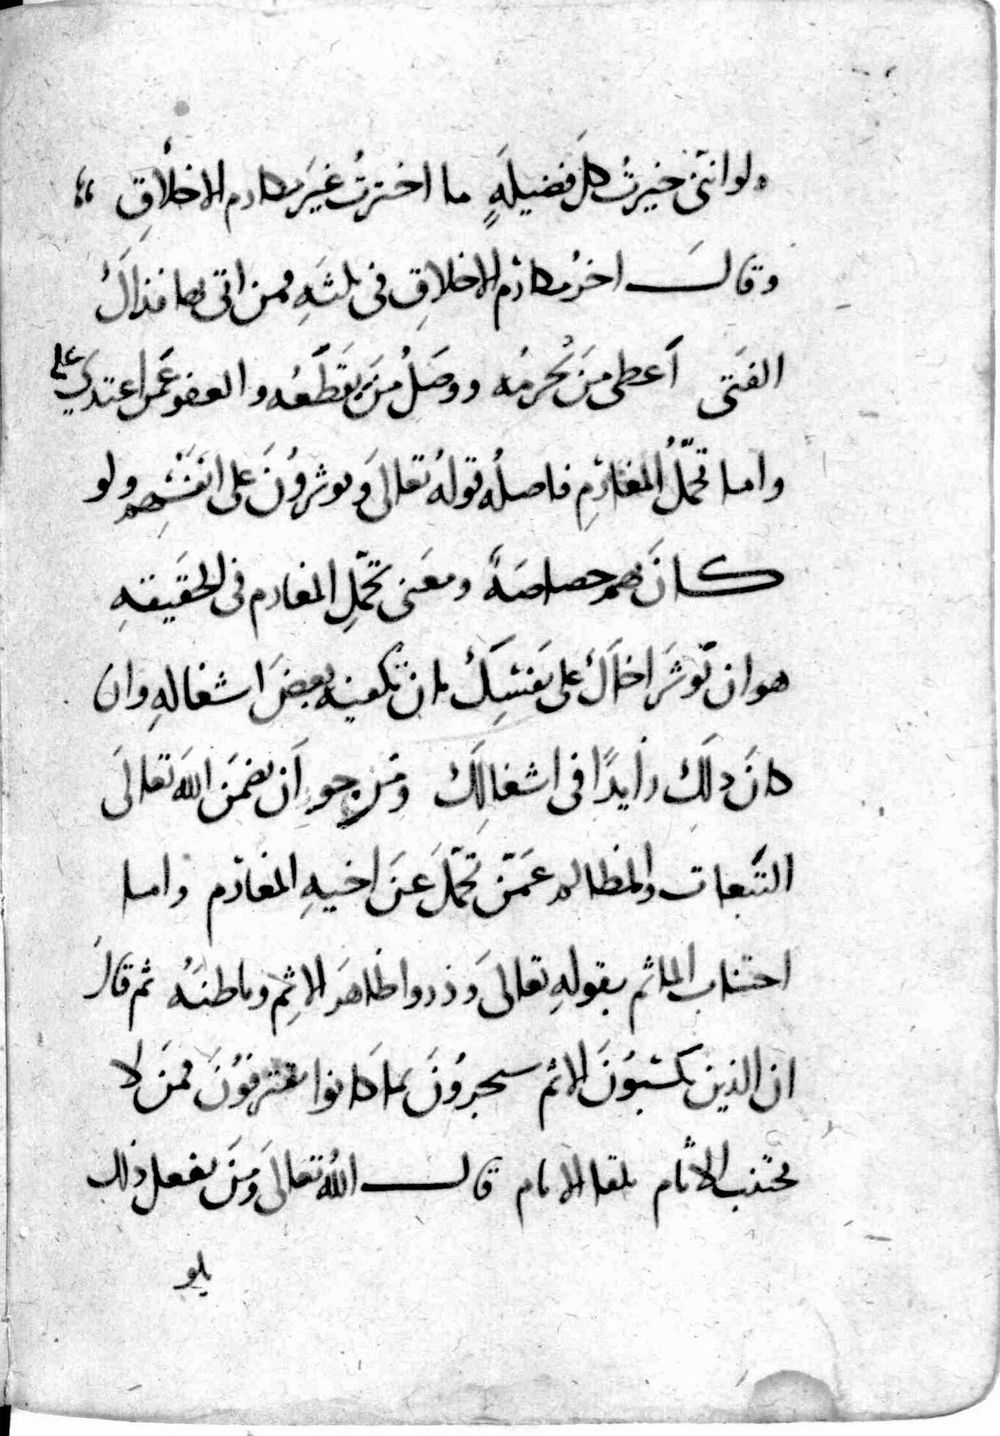 ولو انني خُيرتُ كلَ فضيلةٍ ما اخترتُ غيَر مكارم الاخلاقِ
وقالَ اخرُ مكارمُ الاخلاقِ في ثلثهِ فمن اتى بها فذاكَ
الفَتى اَعطى مَنْ تُحرمُه ووصَلُ مَنْ يقطَعُه والعفو عَمن اعتدي على
واما تحمّلُ المغارمِ فاصلُه قولهُ تعالى ويوثرُونَ على انفُسِهم ولو
كانَ بهم خصاصَةً ومعَنى تحمّلِ المغارم في الحقيقهِ
هو ان تُوثَرَ اخاكَ على نفَسِكَ بان تكفيه بعضَ اشغالهِ وان
كانَ ذلك زايدًا في اشغالِكَ ومَن يرجو اَن يضمَن الله تعالَى
التَبعات والمظالم عَمَن تحمّلَ عَنَ اخيهِ المغارم واما
اجتناب الماثم بقولهِ تعالى وَذروا ظاهرَ الاثِم وباطنَهُ ثم قال
ان الذين يكسَبوُنَ الاثم سيجزوُنَ بما كانوا يقترفوُنَ فمَن لا
يجتنب الاثام يلقا الاثام قال اللهُ تعالَى ومَن يفعل ذلك
يلو